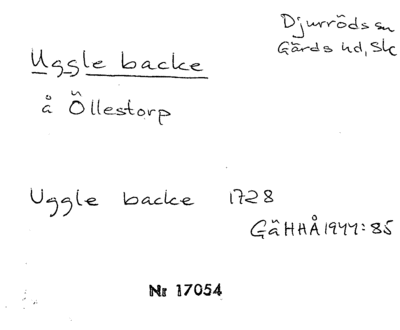 Djurröds sn
Gärds hd, Sk
Uggle backe
å Öllestorp
Uggle backe 1728
GäHHÅ 1944: 85
Nr 17054